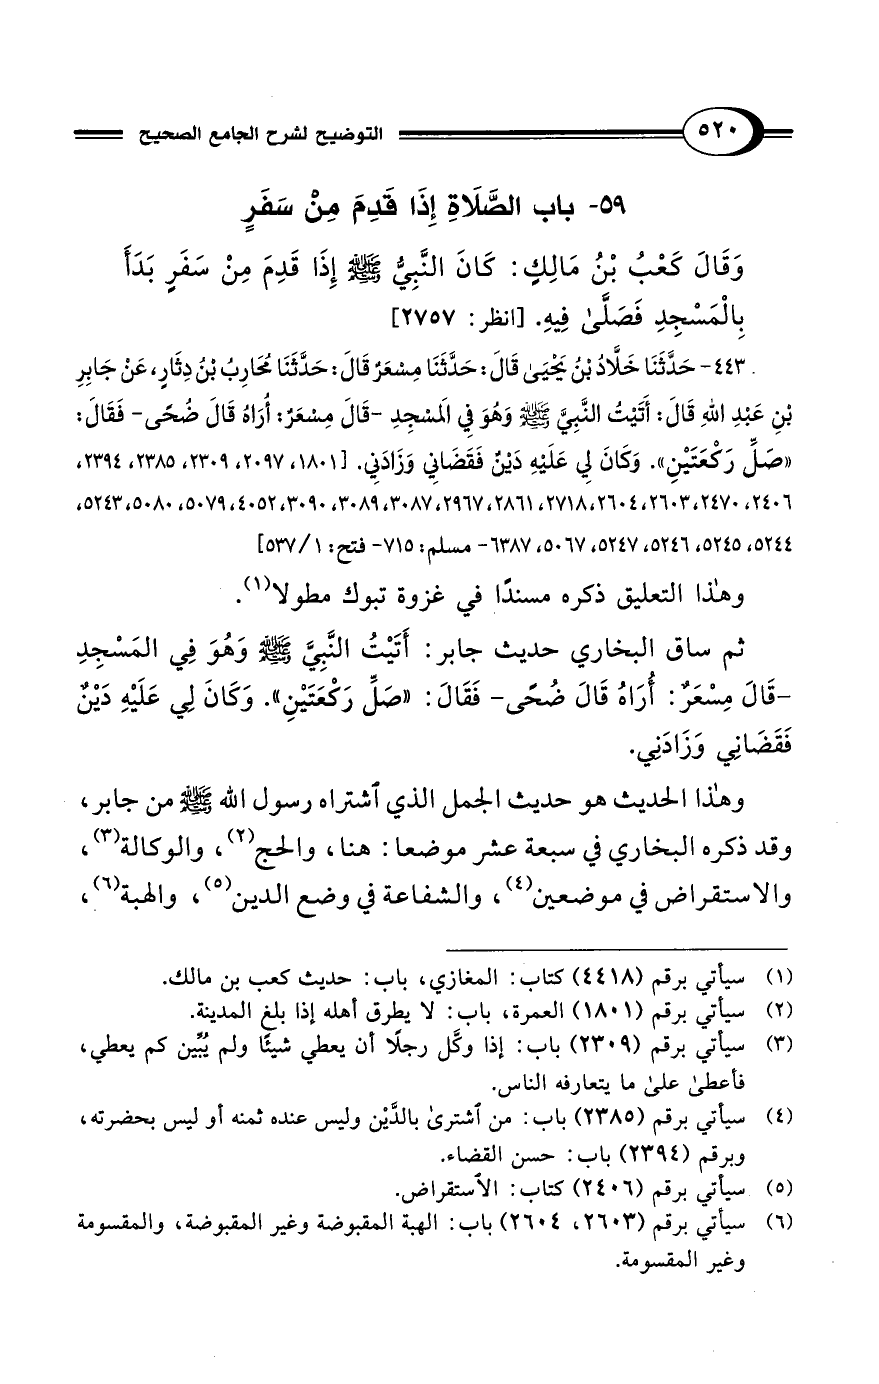 ٥٢٠ التوضيح لشرح الجامع الصحيح
٥٩- باب الصَّلَاةِ إِذَا قَدِمَ مِنْ سَفَرٍ
وَقَالَ كَعْبُ بْنُ مَالِكٍ: كَانَ النَّبِيُّ ﷺ إِذَا قَدِمَ مِنْ سَفَرٍ بَدَأَ
بِالْمَسْجِدِ فَصَلَّىٰ فِيهِ. [انظر: ٢٧٥٧]
٤٤٣- حَدَّثَنَا خَلَّادُ بْنُ يَحْيَىٰ قَالَ: حَدَّثَنَا مِسْعَرٌ قَالَ: حَدَّثَنَا مُحَارِبُ بْنُ دِثَارٍ، عَنْ جَابِرِ
بْنِ عَبْدِ اللهِ قَالَ: أَتَيْتُ النَّبِيَّ ﷺ وَهُوَ فِي الَمسْجِدِ -قَالَ مِسْعَرٌ: أُرَاهُ قَالَ ضُحًى- فَقَالَ:
«صَلِّ رَكْعَتَيْنِ». وَكَانَ لِي عَلَيْهِ دَيْنٌ فَقَضَانِي وَزَادَنِي. [١٨٠١، ٢٠٩٧، ٢٣٠٩، ٢٣٨٥، ٢٣٩٤،
٢٤٠٦، ٢٤٧٠، ٢٦٠٣، ٢٦٠٤، ٢٧١٨، ٢٨٦١، ٢٩٦٧، ٣٠٨٧، ٣٠٨٩، ٣٠٩٠، ٤٠٥٢، ٥٠٧٩، ٥٠٨٠، ٥٢٤٣،
٥٢٤٤، ٥٢٤٥، ٥٢٤٦، ٥٢٤٧، ٥٠٦٧، ٦٣٨٧- مسلم: ٧١٥- فتح: ١/ ٥٣٧]
وهٰذا التعليق ذكره مسندًا في غزوة تبوك مطولا(١).
ثم ساق البخاري حديث جابر: أَتَيْتُ النَّبِيَّ ﷺ وَهُوَ فِي المَسْجِدِ
-قَالَ مِسْعَرٌ: أُرَاهُ قَالَ ضُحًى- فَقَالَ: «صَلِّ رَكْعَتَيْنِ». وَكَانَ لِي عَلَيْهِ دَيْنٌ
فَقَضَانِي وَزَادَنِي.
وهٰذا الحديث هو حديث الجمل الذي ٱشتراه رسول الله ﷺ من جابر،
وقد ذكره البخاري في سبعة عشر موضعا: هنا، والحج(٢)، والوكالة(٣)،
والاستقراض في موضعين(٤)، والشفاعة في وضع الدين(٥)، والهبة(٦)،
(١) سيأتي برقم (٤٤١٨) كتاب: المغازي، باب: حديث كعب بن مالك.
(٢) سيأتي برقم (١٨٠١) العمرة، باب: لا يطرق أهله إذا بلغ المدينة.
(٣) سيأتي برقم (٢٣٠٩) باب: إذا وكَّل رجلًا أن يعطي شيئًا ولم يُبِّين كم يعطي،
فأعطىٰ علىٰ ما يتعارفه الناس.
(٤) سيأتي برقم (٢٣٨٥) باب: من ٱشترىٰ بالدَّيْن وليس عنده ثمنه أو ليس بحضرته،
وبرقم (٢٣٩٤) باب: حسن القضاء.
(٥) سيأتي برقم (٢٤٠٦) كتاب: الٱستقراض.
(٦) سيأتي برقم (٢٦٠٣، ٢٦٠٤) باب: الهبة المقبوضة وغير المقبوضة، والمقسومة
وغير المقسومة.